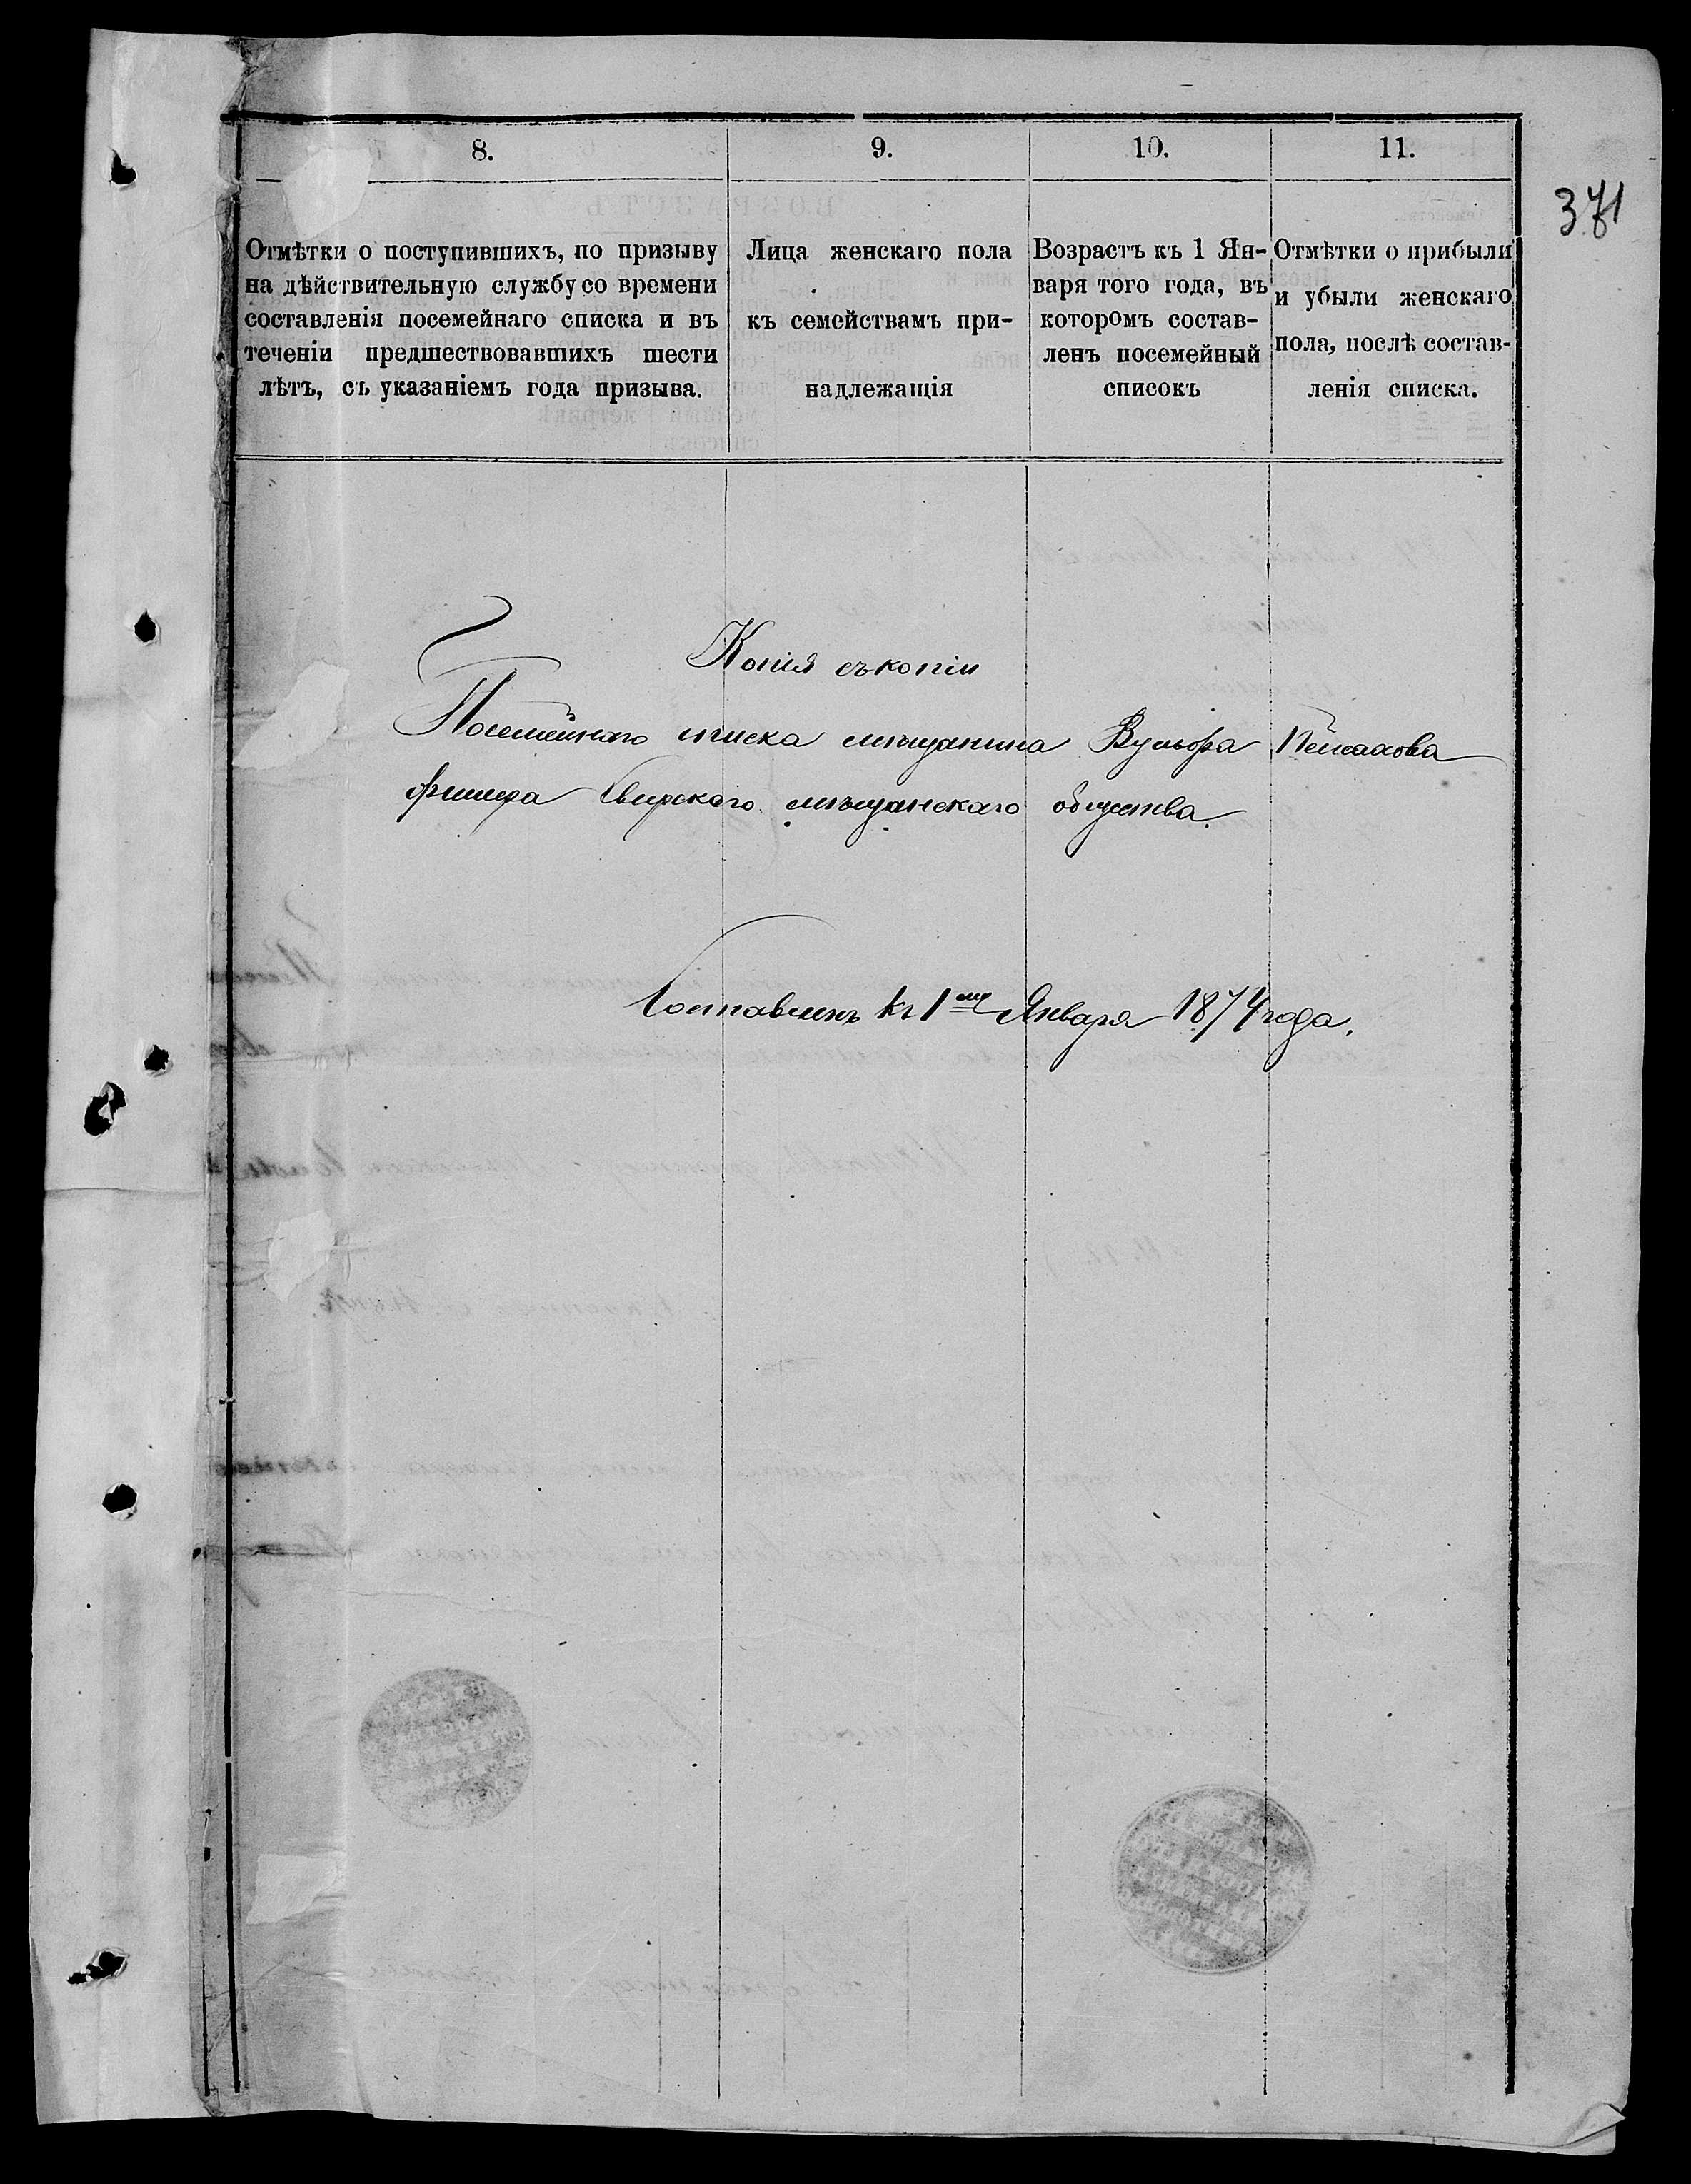 371
8.
9.
10.
11.
Отмѣтки о поступившихъ, по призыву
на дѣйствительную службу со времени
составленія посемейнаго списка и въ
теченіи предшествовавшихъ шести
лѣтъ, съ указаніемъ года призыва.
Лица женскаго пола
къ семействамъ при-
надлежащія
Возрастъ къ 1 Ян-
варя того года, въ
которомъ состав-
ленъ посемейный
списокъ
Отмѣтки о прибыли
и убыли женскаго
пола, послѣ состав-
ленія списка.
Копія съ копіи
Посемейнаго списка мѣщанина Вульфа Пейсахова
Фишера Свирскаго мѣщанскаго общества.
Составленъ къ 1му Января 1874 года.